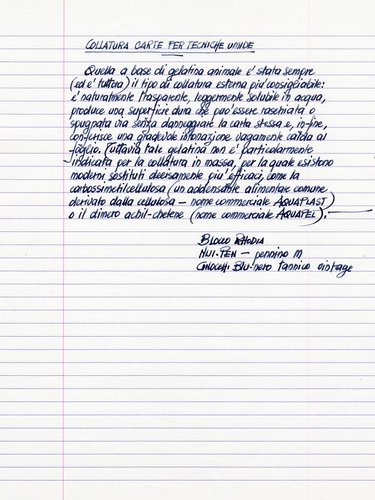 COLLATURA CARTE PER TECNICHE UMIDE
Quella a base di gelatina animale e' stata sempre
(ed e' tuttora) il tipo di collatura esterna piu' consigliabile:
e' naturalmente trasparente, leggermente solubile in acqua,
produce una superficie dura che puo' essere raschiata o
spugnata via senza danneggiare la carta stessa e, in-fine,
conferisce una gradevole intonazione vagamente calda al
foglio. Tuttavia tale gelatina non e' particolarmente
indicata per la collatura in massa, per la quale esistono
moderni sostituti decisamente piu' efficaci, come la
carbossimetilcellulosa (un addensante alimentare comune
derivato dalla cellulosa – nome commerciale AQUAPLAST)
o il dimero achil-chetene (nome commerciale AQUAPEL).
BLOCCO RHODIA
NUI-PEN – pennino M
Blu-nero tannico vintage